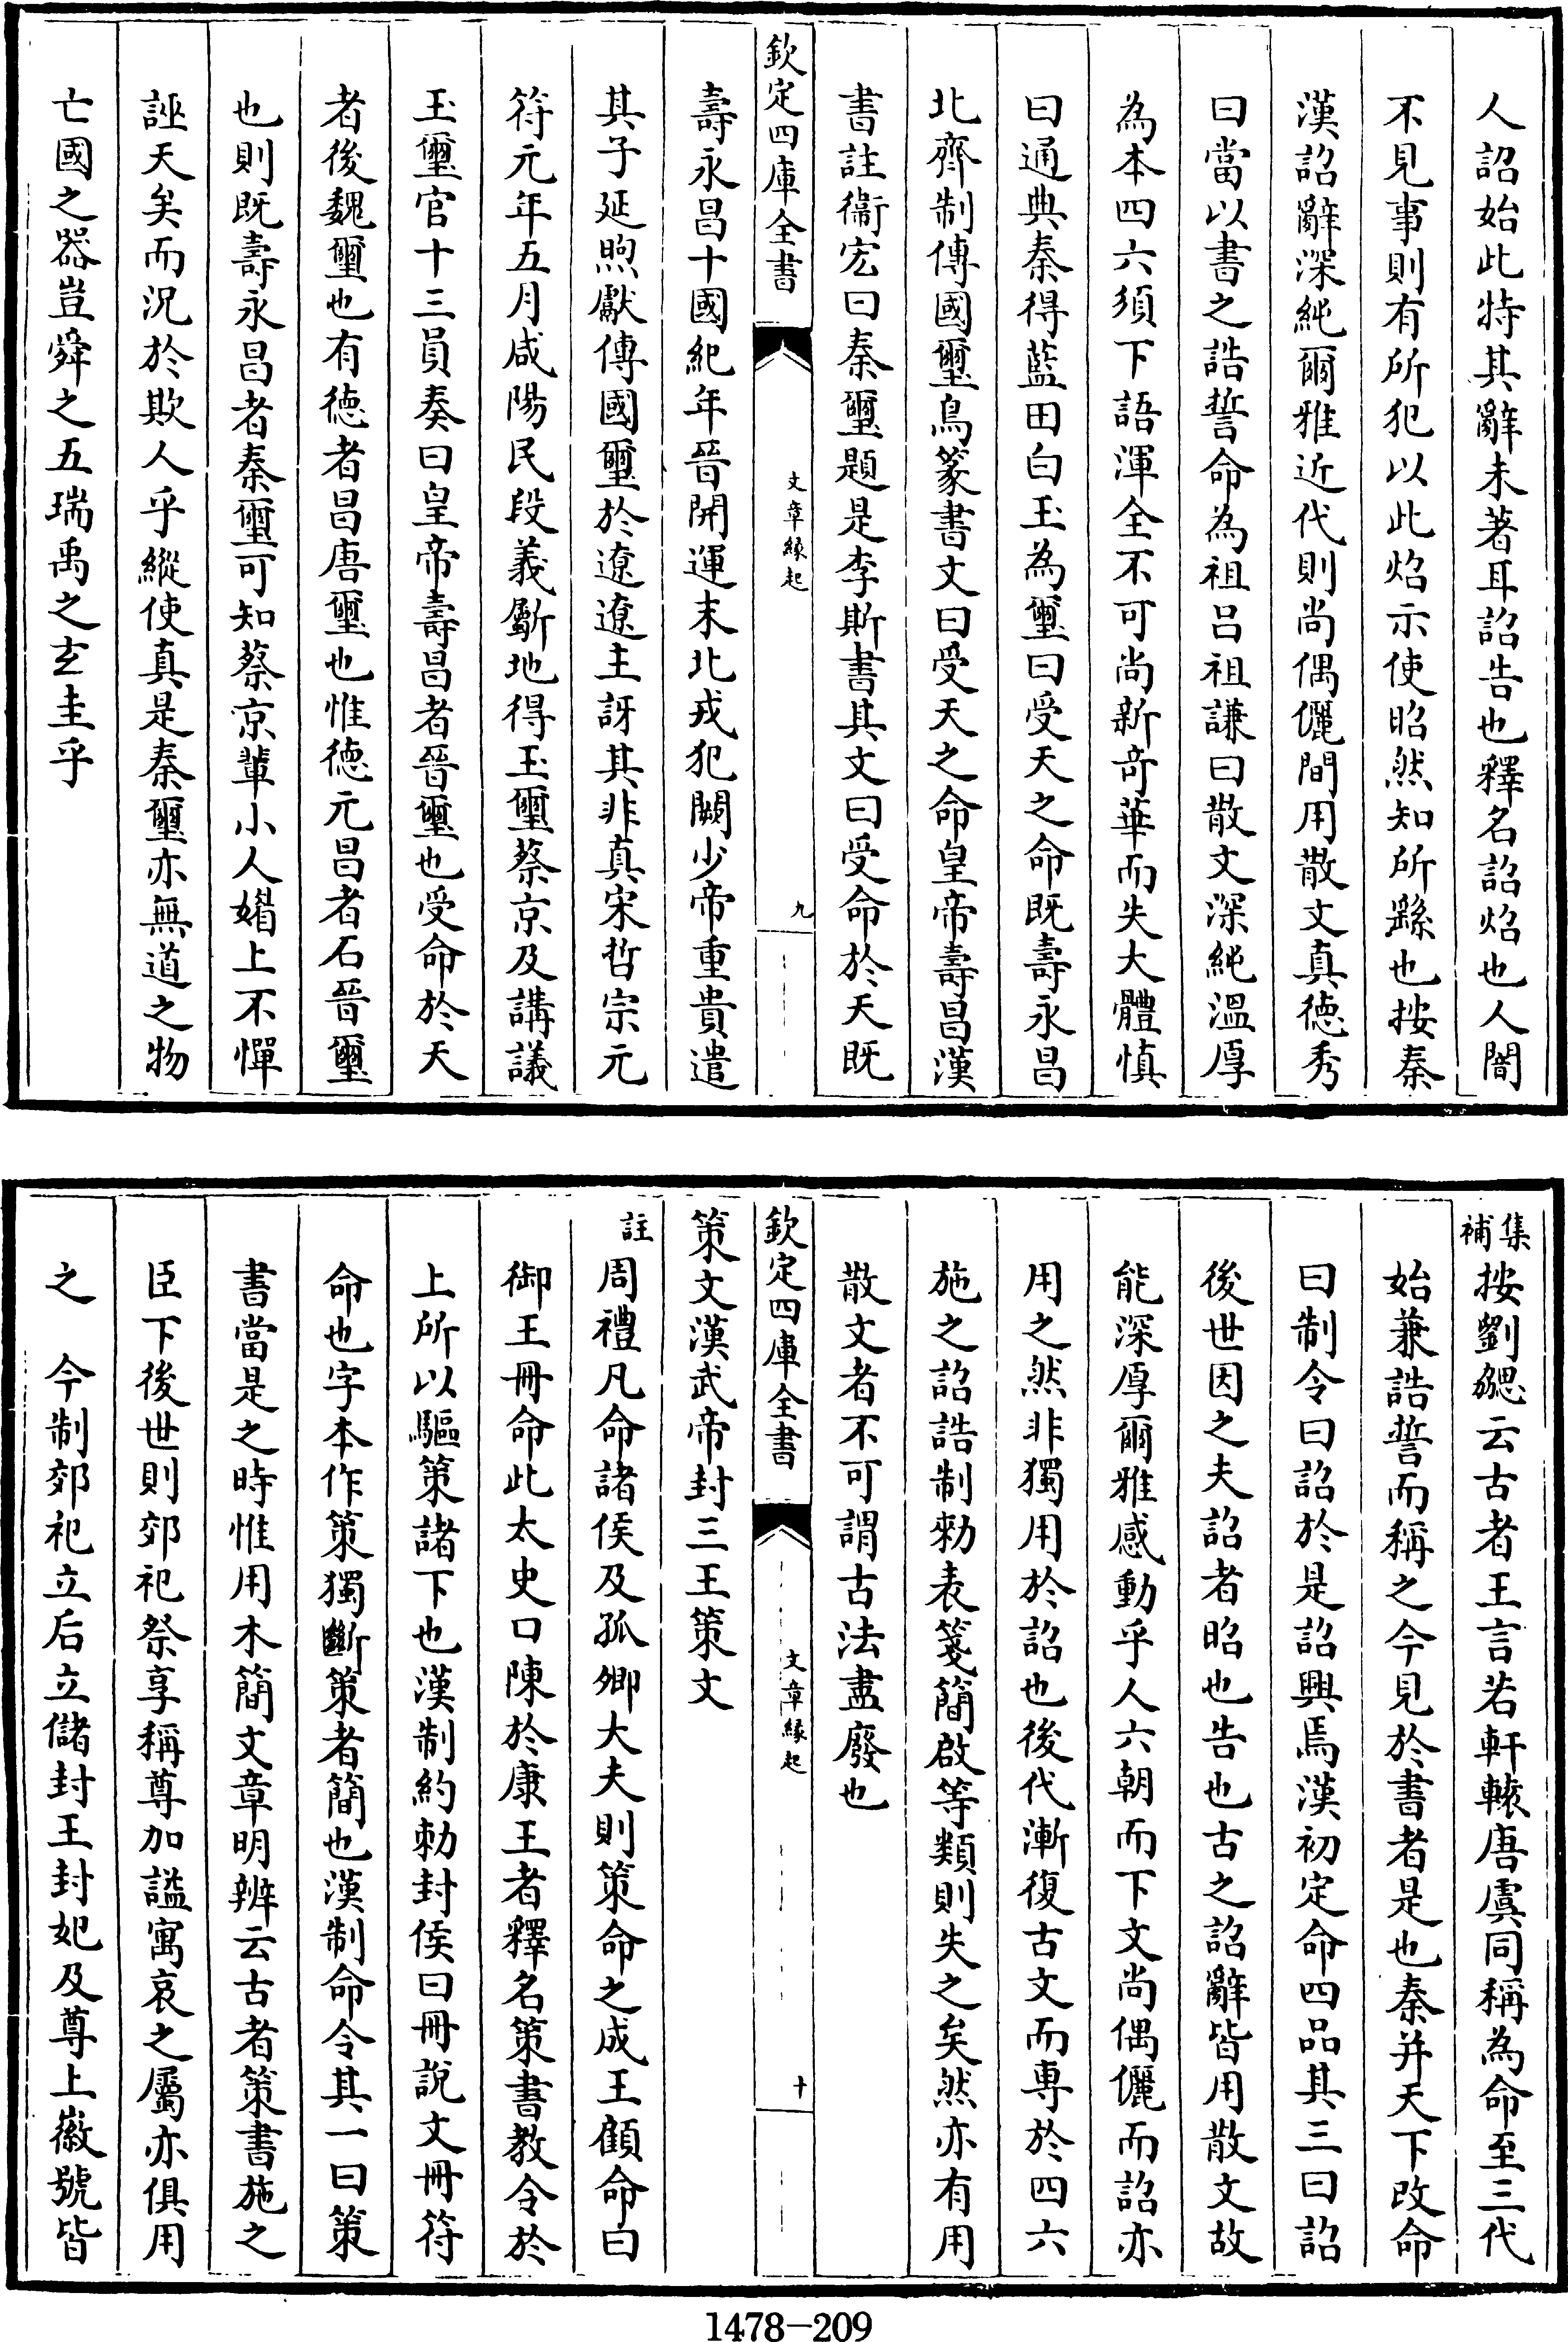 人詔始此特其辭未著耳詔告也釋名詔炤也人闇
不見事則有所犯以此炤示使昭然知所繇也按秦
漢詔辭深純爾雅近代則尚偶儷間用散文真德秀
曰當以書之誥誓命為祖呂祖謙曰散文深純溫厚
為本四六須下語渾全不可尚新竒華而失大體慎
曰通典秦得藍田白玉為璽曰受天之命既壽永昌
北齊制傳國璽鳥篆書文曰受天之命皇帝壽昌漢
書註衞宏曰秦璽題是李斯書其文曰受命於天既
欽定四庫全書
文章緣起
九
壽永昌十國紀年晉開運末北戎犯闕少帝重貴遣
其子延煦獻傳國璽於遼遼主訝其非真宋哲宗元
符元年五月咸陽民段義斸地得玉璽蔡京及講議
玉璽官十三員奏曰皇帝壽昌者晉璽也受命於天
者後魏璽也有德者昌唐璽也惟德元昌者石晉璽
也則既壽永昌者秦璽可知蔡京輩小人媚上不憚
誣天矣而況於欺人乎縱使真是秦璽亦無道之物
亡國之器豈舜之五瑞禹之玄圭乎
集補
按劉勰云古者王言若軒轅唐虞同稱為命至三代
始兼誥誓而稱之今見於書者是也秦并天下改命
曰制令曰詔於是詔興焉漢初定命四品其三曰詔
後世因之夫詔者昭也告也古之詔辭皆用散文故
能深厚爾雅感動乎人六朝而下文尚偶儷而詔亦
用之然非獨用於詔也後代漸復古文而專於四六
施之詔誥制勅表箋簡啟等類則失之矣然亦有用
散文者不可謂古法盡廢也
欽定四庫全書
文章緣起
十
策文漢武帝封三王策文
註
周禮凡命諸侯及孤卿大夫則策命之成王顧命曰
御王冊命此太史口陳於康王者釋名策書教令於
上所以驅策諸下也漢制約勅封侯曰冊說文冊符
命也字本作策獨斷策者簡也漢制命令其一曰策
書當是之時惟用木簡文章明辨云古者策書施之
臣下後世則郊祀祭享稱尊加謚寓哀之屬亦俱用
之 今制郊祀立后立儲封王封妃及尊上徽號皆
1478-209